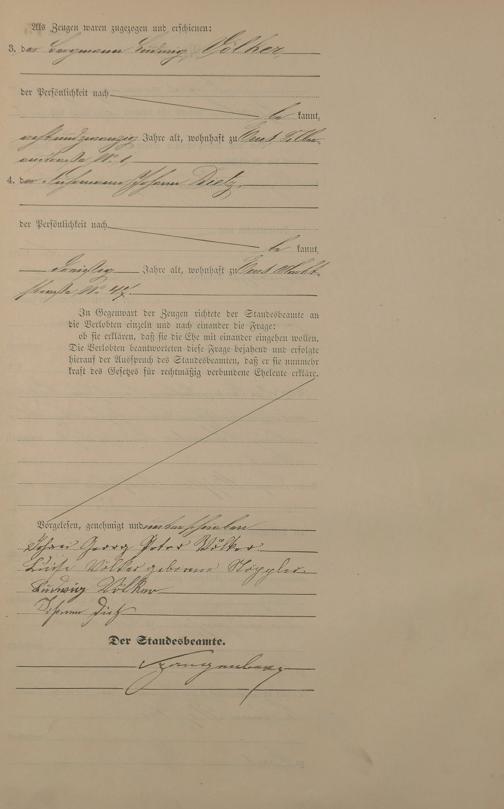 Als Zeugen waren zugezogen und erschienen:
3. der Bergmann Ludwig Völker
der Persönlichkeit nach
be kannt,
achtundzwanzig Jahre alt, wohnhaft zu
No. 1
4. der Johann Dietz
der Persönlichkeit nach
be kannt,
dreißig Jahre alt, wohnhaft zu
straße No. 47
In Gegenwart der Zeugen richtete der Standesbeamte an
die Verlobten einzeln und nach einander die Frage:
ob sie erklären, daß sie die Ehe mit einander eingehen wollen.
Die Verlobten beantworteten diese Frage bejahend und erfolgte
hierauf der Ausspruch des Standesbeamten, daß er sie nunmehr
kraft des Gesetzes für rechtmäßig verbundene Eheleute erkläre.
Vorgelesen, genehmigt und unterschrieben
Johann Georg Peter Völker
Luise Völker geborene
Ludwig Völker
Johann Dietz
Der Standesbeamte.